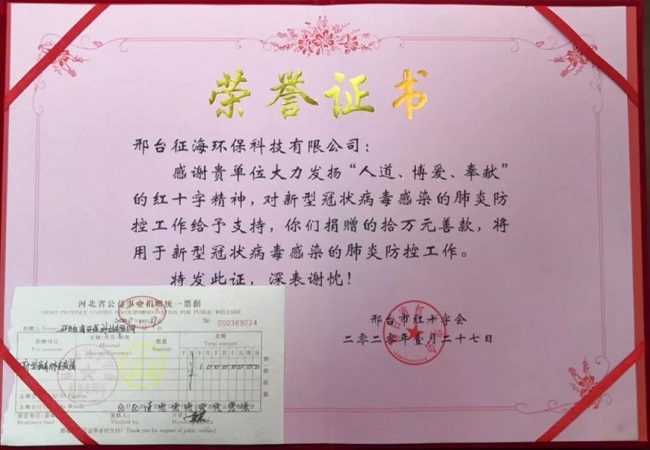 荣誉证书
邢台征海环保科技有限公司：
感谢贵单位大力发扬“人道、博爱、奉献”
的红十字精神，对新型冠状病毒感染的肺炎防
控工作给予支持，你们捐赠的拾万元善款，将
用于新型冠状病毒感染的肺炎防控工作。
特发此证，深表谢忱！
邢台市红十字会
二〇二〇年壹月二十七日
河北省公益事业捐赠统一票据
HEBEI PROVINCE UNIFIED INVOICE OF DONATION FOR PUBLIC WELFARE
№ 000369024
捐赠人
捐赠项目
For purpose
数量
Amount
金额
Total amount
(Thank you for support of public welfare)